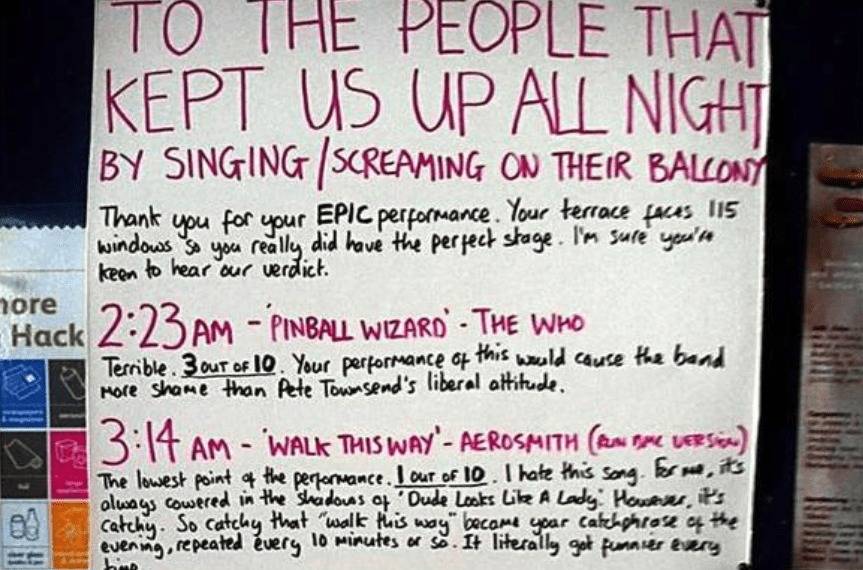 TO THE PEOPLE THAT
KEPT US UP ALL NIGHT
BY SINGING/SCREAMING ON THEIR BALCONY
Thank you for your EPIC performance. Your terrace faces 115
windows so you really did have the perfect stage. I'm sure you're
keen to hear our verdict.
2:23 AM - 'PINBALL WIZARD' - THE WHO
Terrible. 3 OUT OF 10. Your performance of this would cause the band
more shame than Pete Townsend's liberal attitude.
3:14 AM - 'WALK THIS WAY' - AEROSMITH (RUN DMC VERSION)
The lowest point of the performance. 1 OUT OF 10. I hate this song. For me, it's
always cowered in the shadows of 'Dude Looks Like A Lady'. However, it's
catchy. So catchy that "walk this way" became your catchphrase of the
evening, repeated every 10 minutes or so. It literally got funnier every
time.
more
Hack